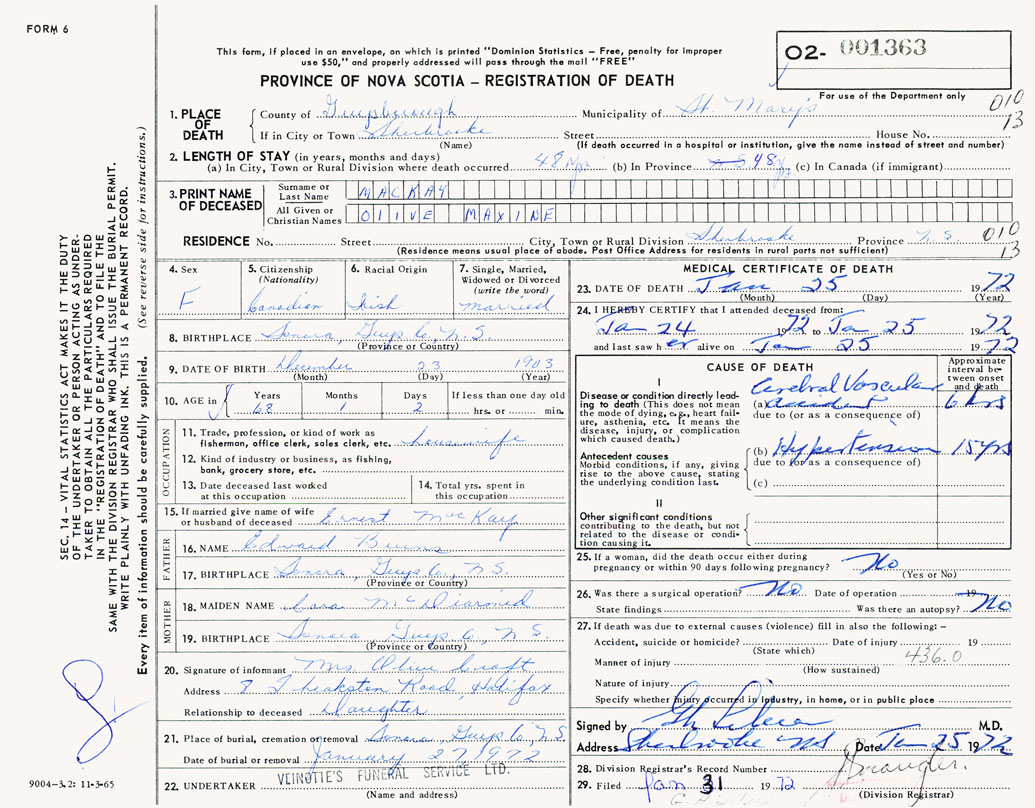 FORM 6
This form, if placed in an envelope, on which is printed "Dominion Statistics – Free, penalty for improper
use $50," and properly addressed will pass through the mail "FREE"
PROVINCE OF NOVA SCOTIA – REGISTRATION OF DEATH
O2- 001363
For use of the Department only
010
13
1. PLACE OF DEATH
County of Guysborough Municipality of St. Mary's
If in City or Town Sherbrooke Street House No.
(Name) (If death occurred in a hospital or institution, give the name instead of street and number)
2. LENGTH OF STAY (in years, months and days)
(a) In City, Town or Rural Division where death occurred 48 yrs (b) In Province 48 yrs (c) In Canada (if immigrant)
3. PRINT NAME OF DECEASED
Surname or Last Name MACKAY
All Given or Christian Names OLIVE MAXINE
RESIDENCE No. Street City, Town or Rural Division Sherbrooke Province N.S. 010
13
(Residence means usual place of abode. Post Office Address for residents in rural parts not sufficient)
4. Sex
F
5. Citizenship
(Nationality)
Canadian
6. Racial Origin
Irish
7. Single, Married,
Widowed or Divorced
(write the word)
Married
8. BIRTHPLACE Sonora, Guys Co, N.S.
(Province or Country)
9. DATE OF BIRTH December 23 1903
(Month) (Day) (Year)
10. AGE in
Years Months Days If less than one day old
68 1 2 hrs. or min.
OCCUPATION
11. Trade, profession, or kind of work as
fisherman, office clerk, sales clerk, etc. housewife
12. Kind of industry or business, as fishing,
bank, grocery store, etc.
13. Date deceased last worked
at this occupation
14. Total yrs. spent in
this occupation
15. If married give name of wife
or husband of deceased Ernest MacKay
FATHER
16. NAME Edward Burns
17. BIRTHPLACE Sonora, Guys Co, N.S.
(Province or Country)
MOTHER
18. MAIDEN NAME Cora McDiarmid
19. BIRTHPLACE Sonora, Guys Co, N S.
(Province or Country)
20. Signature of informant Mrs Olive Croft
Address 8 Theakston Road, Halifax
Relationship to deceased Daughter
21. Place of burial, cremation or removal Sonora, Guys Co, N.S
Date of burial or removal January 27, 1972
22. UNDERTAKER VEINOTTE'S FUNERAL SERVICE LTD.
(Name and address)
MEDICAL CERTIFICATE OF DEATH
23. DATE OF DEATH Jan 25 1972
(Month) (Day) (Year)
24. I HEREBY CERTIFY that I attended deceased from:
Jan 24 1972 to Jan 25 1972
and last saw her alive on Jan 25 1972
CAUSE OF DEATH
Approximate interval between onset and death
I
Disease or condition directly leading
to death (This does not mean
the mode of dying, e.g., heart failure,
asthenia, etc. It means the
disease, injury, or complication
which caused death.)
Cerebral Vascular
(a) accident 6 hrs
due to (or as a consequence of)
Antecedent causes
Morbid conditions, if any, giving
rise to the above cause, stating
the underlying condition last.
(b) Hypertension 15 yrs
due to (or as a consequence of)
(c)
II
Other significant conditions
contributing to the death, but not
related to the disease or condition
causing it.
25. If a woman, did the death occur either during
pregnancy or within 90 days following pregnancy? No
(Yes or No)
26. Was there a surgical operation? No Date of operation 19
State findings Was there an autopsy? No
27. If death was due to external causes (violence) fill in also the following: –
Accident, suicide or homicide? Date of injury 19
(State which) 436.0
Manner of injury
(How sustained)
Nature of injury
Specify whether injury occurred in industry, in home, or in public place
Signed by M.D.
Address Sherbrooke NS Date Jan 25 1972
28. Division Registrar's Record Number
29. Filed Jan 31 1972
(Division Registrar)
SEC. 14 – VITAL STATISTICS ACT MAKES IT THE DUTY
OF THE UNDERTAKER OR PERSON ACTING AS UNDER-
TAKER TO OBTAIN ALL THE PARTICULARS REQUIRED
IN THE "REGISTRATION OF DEATH" AND TO FILE THE
SAME WITH THE DIVISION REGISTRAR WHO SHALL ISSUE THE BURIAL PERMIT.
WRITE PLAINLY WITH UNFADING INK. THIS IS A PERMANENT RECORD.
Every item of information should be carefully supplied. (See reverse side for instructions.)
9004-3.2: 11-3-65